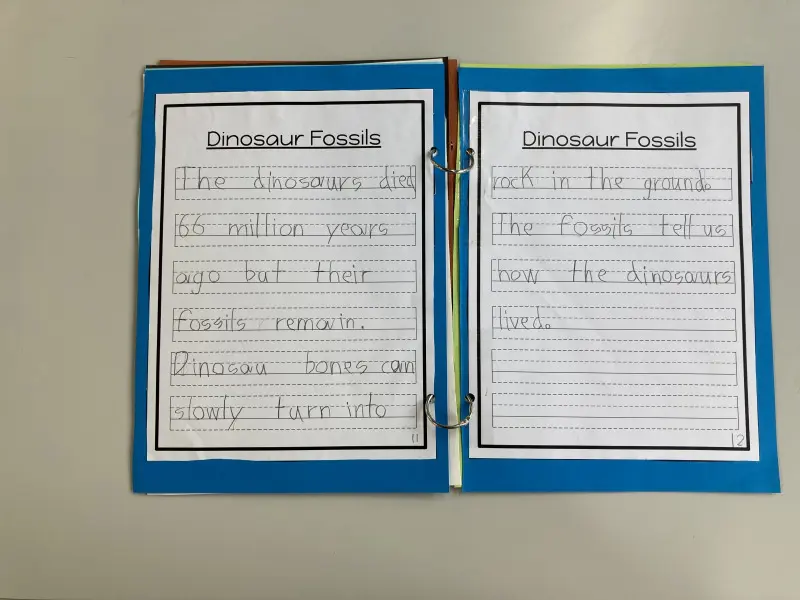 Dinosaur Fossils
The dinosaurs died
66 million years
ago but their
fossils remain.
Dinosau bones can
slowly turn into
11
Dinosaur Fossils
rock in the ground.
The fossils tell us
how the dinosaurs
lived.
12